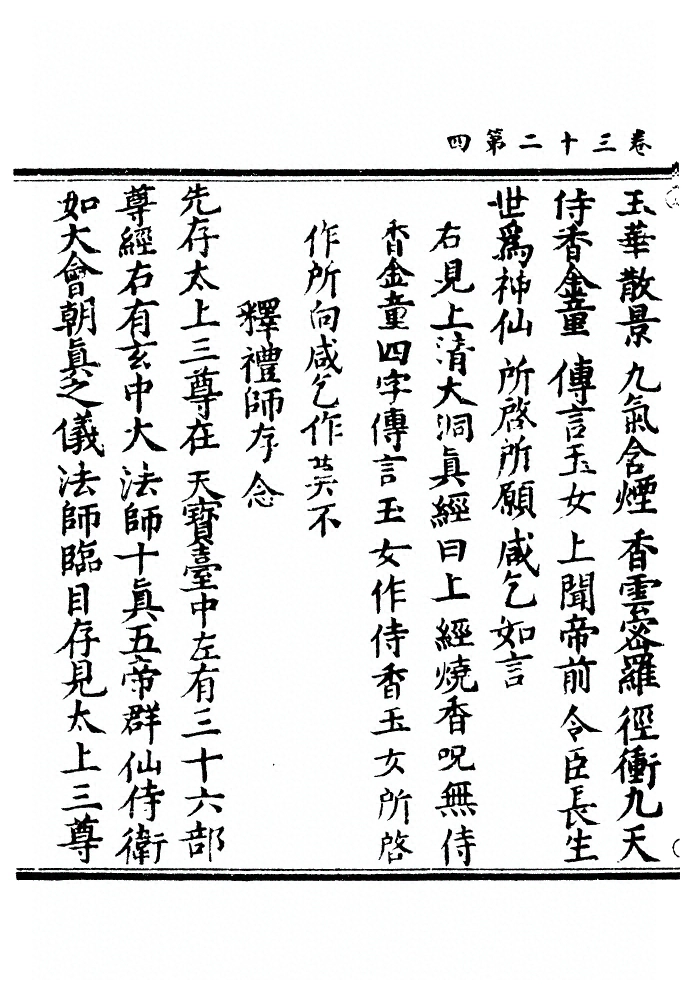 卷三十二第四
玉華散景九氣含煙香雲密羅徑衝九天
侍香金童傳言玉女上聞帝前令臣長生
世爲神仙所啓所願咸乞如言
右見上清大洞眞經曰上經燒香呪無侍
香金童四字傳言玉女作侍香玉女所啓
作所向咸乞作莫不
釋禮師存念
先存太上三尊在天寶臺中左有三十六部
尊經右有玄中大法師十眞五帝群仙侍衛
如大會朝眞之儀法師臨目存見太上三尊